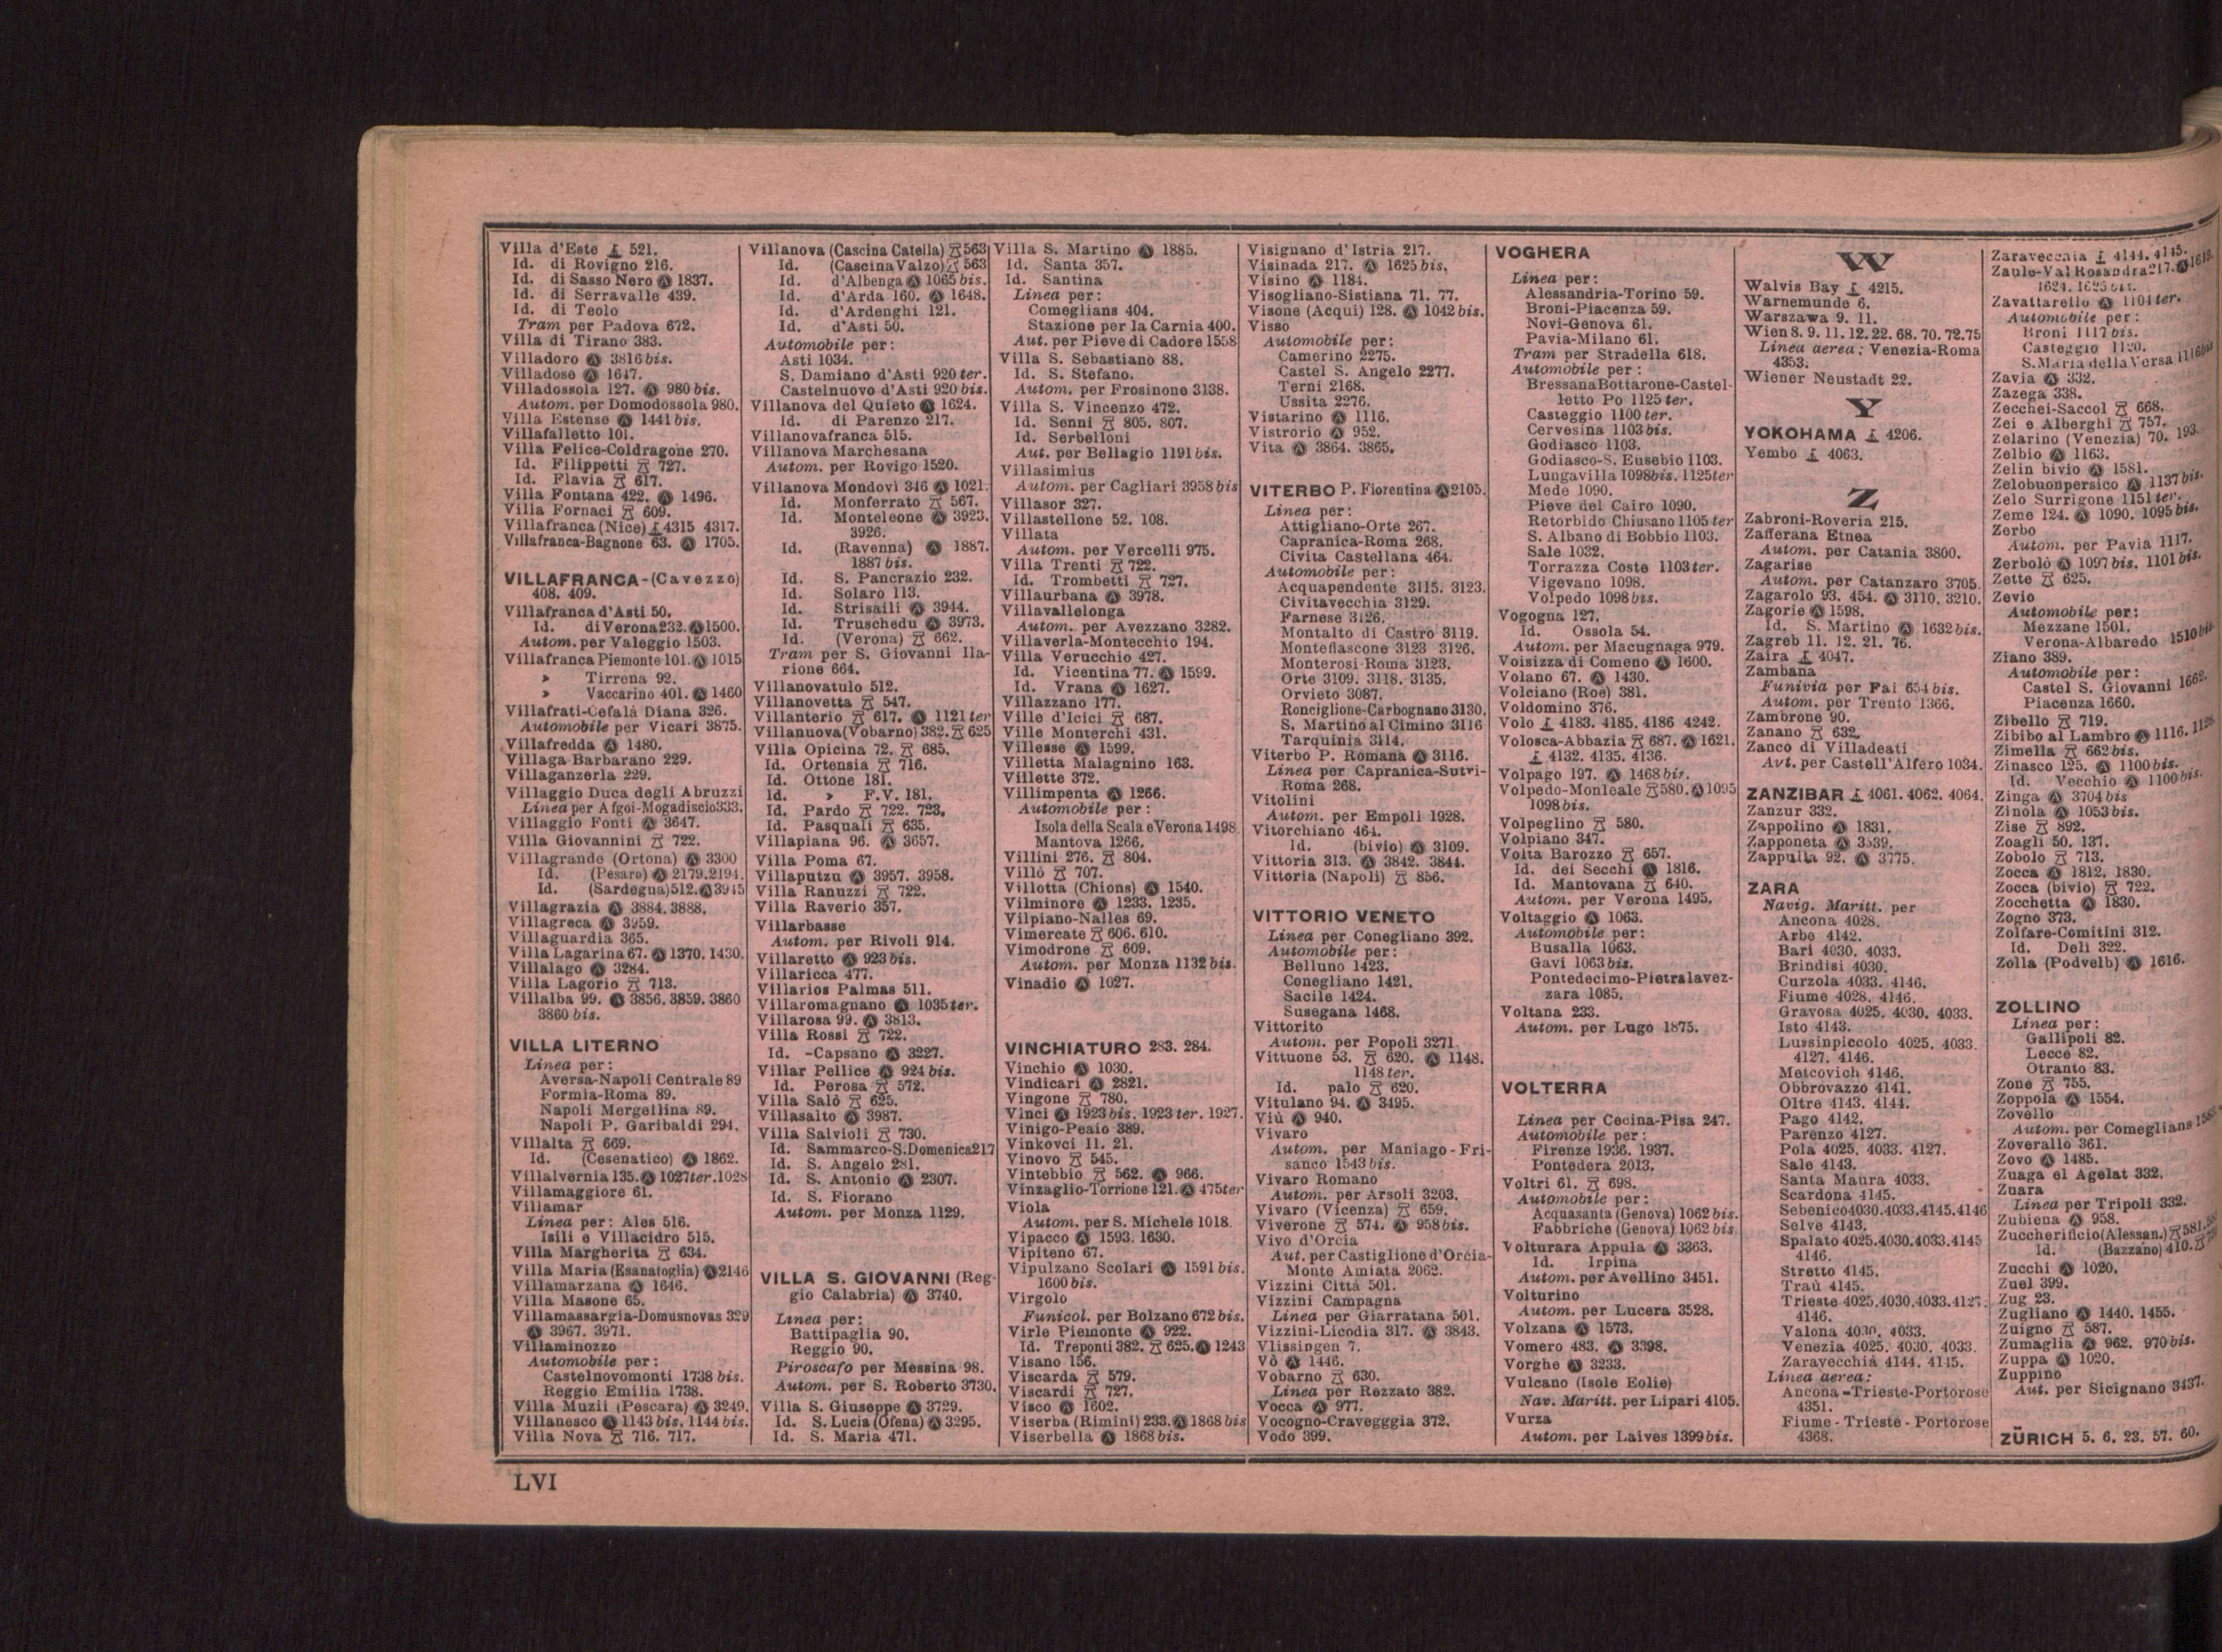 Villa d'Este 521.
Id. di Rovigno 216.
Id. di Sasso Nero Ⓐ 1837.
Id. di Serravalle 439.
Id. di Teolo
Tram per Padova 672.
Villa di Tirano 383.
Villadoro Ⓐ 3816 bis.
Villadose Ⓐ 1647.
Villadossola 127. Ⓐ 980 bis.
Autom. per Domodossola 980.
Villa Estense Ⓐ 1441 bis.
Villafalletto 101.
Villa Felice-Coldragone 270.
Id. Filippetti 727.
Id. Flavia 617.
Villa Fontana 422. Ⓐ 1496.
Villa Fornaci 609.
Villafranca (Nice) 4315 4317.
Villafranca-Bagnone 63. Ⓐ 1705.
VILLAFRANCA-(Cavezzo)
408. 409.
Villafranca d'Asti 50.
Id. di Verona 232. Ⓐ 1500.
Autom. per Valeggio 1503.
Villafranca Piemonte 101. Ⓐ 1015
» Tirrena 92.
» Vaccarino 401. Ⓐ 1460
Villafrati-Cefalà Diana 326.
Automobile per Vicari 3875.
Villafredda Ⓐ 1480.
Villaga Barbarano 229.
Villaganzerla 229.
Villaggio Duca degli Abruzzi
Linea per Afgoi-Mogadiscio 333.
Villaggio Fonti Ⓐ 3647.
Villa Giovannini 722.
Villagrande (Ortona) Ⓐ 3300
Id. (Pesaro) Ⓐ 2179. 2194.
Id. (Sardegna) 512. Ⓐ 3945
Villagrazia Ⓐ 3884. 3888.
Villagreca Ⓐ 3959.
Villaguardia 365.
Villa Lagarina 67. Ⓐ 1370. 1430.
Villalago Ⓐ 3284.
Villa Lagorio 713.
Villalba 99. Ⓐ 3856. 3859. 3860
3860 bis.
VILLA LITERNO
Linea per:
Aversa-Napoli Centrale 89
Formia-Roma 89.
Napoli Mergellina 89.
Napoli P. Garibaldi 294.
Villalta 669.
Id. (Cesenatico) Ⓐ 1862.
Villalvernia 135. Ⓐ 1027ter. 1028
Villamaggiore 61.
Villamar
Linea per: Ales 516.
Isili e Villacidro 515.
Villa Margherita 634.
Villa Maria (Esanatoglia) Ⓐ 2146
Villamarzana Ⓐ 1646.
Villa Masone 65.
Villamassargia-Domusnovas 329
Ⓐ 3967. 3971.
Villaminozzo
Automobile per:
Castelnovomonti 1738 bis.
Reggio Emilia 1738.
Villa Muzii (Pescara) Ⓐ 3249.
Villanesco Ⓐ 1143 bis. 1144 bis.
Villa Nova 716. 717.
Villanova (Cascina Catella) 563
Id. (Cascina Valzo) 563
Id. d'Albenga Ⓐ 1065 bis.
Id. d'Arda 160. Ⓐ 1648.
Id. d'Ardenghi 121.
Id. d'Asti 50.
Automobile per:
Asti 1034.
S. Damiano d'Asti 920 ter.
Castelnuovo d'Asti 920 bis.
Villanova del Quieto Ⓐ 1624.
Id. di Parenzo 217.
Villanovafranca 515.
Villanova Marchesana
Autom. per Rovigo 1520.
Villanova Mondovì 346 Ⓐ 1021.
Id. Monferrato 567.
Id. Monteleone Ⓐ 3923.
3926.
Id. (Ravenna) Ⓐ 1887.
1887 bis.
Id. S. Pancrazio 232.
Id. Solaro 113.
Id. Strisaili Ⓐ 3944.
Id. Truschedu Ⓐ 3973.
Id. (Verona) 662.
Tram per S. Giovanni Ila-
rione 664.
Villanovatulo 512.
Villanovetta 547.
Villanterio 617. Ⓐ 1121 ter
Villanuova (Vobarno) 382. 625
Villa Opicina 72. 685.
Id. Ortensia 716.
Id. Ottone 181.
Id. » F.V. 181.
Id. Pardo 722. 723.
Id. Pasquali 635.
Villapiana 96. Ⓐ 3657.
Villa Poma 67.
Villaputzu Ⓐ 3957. 3958.
Villa Ranuzzi 722.
Villa Raverio 357.
Villarbasse
Autom. per Rivoli 914.
Villaretto Ⓐ 923 bis.
Villaricca 477.
Villarios Palmas 511.
Villaromagnano Ⓐ 1035 ter.
Villarosa 99. Ⓐ 3813.
Villa Rossi 722.
Id. -Capsano Ⓐ 3227.
Villar Pellice Ⓐ 924 bis.
Id. Perosa 572.
Villa Salò 625.
Villasalto Ⓐ 3987.
Villa Salvioli 730.
Id. Sammarco-S. Domenica 217
Id. S. Angelo 281.
Id. S. Antonio Ⓐ 2307.
Id. S. Fiorano
Autom. per Monza 1129.
VILLA S. GIOVANNI (Reg-
gio Calabria) Ⓐ 3740.
Linea per:
Battipaglia 90.
Reggio 90.
Piroscafo per Messina 98.
Autom. per S. Roberto 3730.
Villa S. Giuseppe Ⓐ 3729.
Id. S. Lucia (Ofena) Ⓐ 3295.
Id. S. Maria 471.
Villa S. Martino Ⓐ 1885.
Id. Santa 357.
Id. Santina
Linea per:
Comeglians 404.
Stazione per la Carnia 400.
Aut. per Pieve di Cadore 1558
Villa S. Sebastiano 88.
Id. S. Stefano.
Autom. per Frosinone 3138.
Villa S. Vincenzo 472.
Id. Senni 805. 807.
Id. Serbelloni
Aut. per Bellagio 1191 bis.
Villasimius
Autom. per Cagliari 3958 bis
Villasor 327.
Villastellone 52. 108.
Villata
Autom. per Vercelli 975.
Villa Trenti 722.
Id. Trombetti 727.
Villaurbana Ⓐ 3978.
Villavallelonga
Autom. per Avezzano 3282.
Villaverla-Montecchio 194.
Villa Verucchio 427.
Id. Vicentina 77. Ⓐ 1599.
Id. Vrana Ⓐ 1627.
Villazzano 177.
Ville d'Icici 687.
Ville Monterchi 431.
Villesse Ⓐ 1599.
Villetta Malagnino 163.
Villette 372.
Villimpenta Ⓐ 1266.
Automobile per:
Isola della Scala e Verona 1498
Mantova 1266.
Villini 276. 804.
Villò 707.
Villotta (Chions) Ⓐ 1540.
Vilminore Ⓐ 1233. 1235.
Vilpiano-Nalles 69.
Vimercate 606. 610.
Vimodrone 609.
Autom. per Monza 1132 bis.
Vinadio Ⓐ 1027.
VINCHIATURO 283. 284.
Vinchio Ⓐ 1030.
Vindicari Ⓐ 2821.
Vingone 780.
Vinci Ⓐ 1923 bis. 1923 ter. 1927.
Vinigo-Peaio 389.
Vinkovci 11. 21.
Vinovo 545.
Vintebbio 562. Ⓐ 966.
Vinzaglio-Torrione 121. Ⓐ 475ter
Viola
Autom. per S. Michele 1018.
Vipacco Ⓐ 1593. 1630.
Vipiteno 67.
Vipulzano Scolari Ⓐ 1591 bis.
1600 bis.
Virgolo
Funicol. per Bolzano 672 bis.
Virle Piemonte Ⓐ 922.
Id. Treponti 382. 625. Ⓐ 1243
Visano 156.
Viscarda 579.
Viscardi 727.
Visco Ⓐ 1602.
Viserba (Rimini) 233. Ⓐ 1868 bis
Viserbella Ⓐ 1868 bis.
Visignano d'Istria 217.
Visinada 217. Ⓐ 1625 bis.
Visino Ⓐ 1184.
Visogliano-Sistiana 71. 77.
Visone (Acqui) 128. Ⓐ 1042 bis.
Visso
Automobile per:
Camerino 2275.
Castel S. Angelo 2277.
Terni 2168.
Ussita 2276.
Vistarino Ⓐ 1116.
Vistrorio Ⓐ 952.
Vita Ⓐ 3864. 3865.
VITERBO P. Fiorentina Ⓐ 2105.
Linea per:
Attigliano-Orte 267.
Capranica-Roma 268.
Civita Castellana 464.
Automobile per:
Acquapendente 3115. 3123.
Civitavecchia 3129.
Farnese 3126.
Montalto di Castro 3119.
Montefiascone 3123 3126.
Monterosi-Roma 3123.
Orte 3109. 3118. 3135.
Orvieto 3087.
Ronciglione-Carbognano 3130.
S. Martino al Cimino 3116
Tarquinia 3114.
Viterbo P. Romana Ⓐ 3116.
Linea per Capranica-Sutri-
Roma 268.
Vitolini
Autom. per Empoli 1928.
Vitorchiano 464.
Id. (bivio) Ⓐ 3109.
Vittoria 313. Ⓐ 3842. 3844.
Vittoria (Napoli) 856.
VITTORIO VENETO
Linea per Conegliano 392.
Automobile per:
Belluno 1423.
Conegliano 1421.
Sacile 1424.
Susegana 1468.
Vittorito
Autom. per Popoli 3271.
Vittuone 53. 620. Ⓐ 1148.
1148 ter.
Id. palo 620.
Vitulano 94. Ⓐ 3495.
Viù Ⓐ 940.
Vivaro
Autom. per Maniago-Fri-
sanco 1543 bis.
Vivaro Romano
Autom. per Arsoli 3203.
Vivaro (Vicenza) 659.
Viverone 574. Ⓐ 958 bis.
Vivo d'Orcia
Aut. per Castiglione d'Orcia-
Monte Amiata 2062.
Vizzini Città 501.
Vizzini Campagna
Linea per Giarratana 501.
Vizzini-Licodia 317. Ⓐ 3843.
Vlissingen 7.
Vò Ⓐ 1446.
Vobarno 630.
Linea per Rezzato 382.
Vocca Ⓐ 977.
Vocogno-Cravegggia 372.
Vodo 399.
VOGHERA
Linea per:
Alessandria-Torino 59.
Broni-Piacenza 59.
Novi-Genova 61.
Pavia-Milano 61.
Tram per Stradella 618.
Automobile per:
Bressana Bottarone-Castel-
letto Po 1125 ter.
Casteggio 1100 ter.
Cervesina 1103 bis.
Godiasco 1103.
Godiasco-S. Eusebio 1103.
Lungavilla 1098bis. 1125ter
Mede 1090.
Pieve del Cairo 1090.
Retorbido Chiusano 1105 ter
S. Albano di Bobbio 1103.
Sale 1032.
Torrazza Coste 1103 ter.
Vigevano 1098.
Volpedo 1098 bis.
Vogogna 127.
Id. Ossola 54.
Autom. per Macugnaga 979.
Voisizza di Comeno Ⓐ 1600.
Volano 67. Ⓐ 1430.
Volciano (Roè) 381.
Voldomino 376.
Volo 4183. 4185. 4186 4242.
Volosca-Abbazia 687. Ⓐ 1621.
4132. 4135. 4136.
Volpago 197. Ⓐ 1468 bis.
Volpedo-Monleale 580. Ⓐ 1095
1098 bis.
Volpeglino 580.
Volpiano 347.
Volta Barozzo 657.
Id. dei Secchi Ⓐ 1816.
Id. Mantovana 640.
Autom. per Verona 1495.
Voltaggio Ⓐ 1063.
Automobile per:
Busalla 1063.
Gavi 1063 bis.
Pontedecimo-Pietralavez-
zara 1085.
Voltana 233.
Autom. per Lugo 1875.
VOLTERRA
Linea per Cecina-Pisa 247.
Automobile per:
Firenze 1936. 1937.
Pontedera 2013.
Voltri 61. 698.
Automobile per:
Acquasanta (Genova) 1062 bis.
Fabbriche (Genova) 1062 bis.
Volturara Appula Ⓐ 3363.
Id. Irpina
Autom. per Avellino 3451.
Volturino
Autom. per Lucera 3528.
Volzana Ⓐ 1573.
Vomero 483. Ⓐ 3398.
Vorghe Ⓐ 3233.
Vulcano (Isole Eolie)
Nav. Maritt. per Lipari 4105.
Vurza
Autom. per Laives 1399 bis.
W
Walvis Bay 4215.
Warnemunde 6.
Warszawa 9. 11.
Wien 8. 9. 11. 12. 22. 68. 70. 72. 75
Linea aerea: Venezia-Roma
4353.
Wiener Neustadt 22.
Y
YOKOHAMA 4206.
Yembo 4063.
Z
Zabroni-Roveria 215.
Zafferana Etnea
Autom. per Catania 3800.
Zagarise
Autom. per Catanzaro 3705.
Zagarolo 93. 454. Ⓐ 3110. 3210.
Zagorie Ⓐ 1598.
Id. S. Martino Ⓐ 1632 bis.
Zagreb 11. 12. 21. 76.
Zaira 4047.
Zambana
Funivia per Fai 654 bis.
Autom. per Trento 1366.
Zambrone 90.
Zanano 632.
Zanco di Villadeati
Avt. per Castell'Alfero 1034.
ZANZIBAR 4061. 4062. 4064.
Zanzur 332.
Zappolino Ⓐ 1831.
Zapponeta Ⓐ 3539.
Zappulla 92. Ⓐ 3775.
ZARA
Navig. Maritt. per
Ancona 4028.
Arbe 4142.
Bari 4030. 4033.
Brindisi 4030.
Curzola 4033. 4146.
Fiume 4028. 4146.
Gravosa 4025. 4030. 4033.
Isto 4143.
Lussinpiccolo 4025. 4033.
4127. 4146.
Metcovich 4146.
Obbrovazzo 4141.
Oltre 4143. 4144.
Pago 4142.
Parenzo 4127.
Pola 4025. 4033. 4127.
Sale 4143.
Santa Maura 4033.
Scardona 4145.
Sebenico 4030. 4033. 4145. 4146
Selve 4143.
Spalato 4025. 4030. 4033. 4145
4146.
Stretto 4145.
Traù 4145.
Trieste 4025. 4030. 4033. 4127.
4146.
Valona 4030. 4033.
Venezia 4025. 4030. 4033.
Zaravecchia 4144. 4145.
Linea aerea:
Ancona-Trieste-Portorose
4351.
Fiume-Trieste-Portorose
4368.
Zaravecchia 4144. 4145.
Zaule-Val Rosandra 217. Ⓐ
1624. 1625 bis.
Zavattarello Ⓐ 1101 ter.
Automobile per:
Broni 1117 bis.
Casteggio 1120.
S. Maria della Versa 1116bis
Zavia Ⓐ 332.
Zazega 338.
Zecchei-Saccol 668.
Zei e Alberghi 757.
Zelarino (Venezia) 70. 193.
Zelbio Ⓐ 1163.
Zelin bivio Ⓐ 1581.
Zelobuonpersico Ⓐ 1137 bis.
Zelo Surrigone 1151 ter.
Zeme 124. Ⓐ 1090. 1095 bis.
Zerbo
Autom. per Pavia 1117.
Zerbolò Ⓐ 1097 bis. 1101 bis.
Zette 625.
Zevio
Automobile per:
Mezzane 1501.
Verona-Albaredo 1510 bis
Ziano 389.
Automobile per:
Castel S. Giovanni 1662.
Piacenza 1660.
Zibello 719.
Zibibo al Lambro Ⓐ 1116.
Zimella 662 bis.
Zinasco 125. Ⓐ 1100 bis.
Id. Vecchio Ⓐ 1100 bis.
Zinga Ⓐ 3704 bis
Zinola Ⓐ 1053 bis.
Zise 892.
Zoagli 50. 137.
Zobolo 713.
Zocca Ⓐ 1812. 1830.
Zocca (bivio) 722.
Zocchetta Ⓐ 1830.
Zogno 373.
Zolfare-Comitini 312.
Id. Deli 322.
Zolla (Podvelb) Ⓐ 1616.
ZOLLINO
Linea per:
Gallipoli 82.
Lecce 82.
Otranto 83.
Zone 755.
Zoppola Ⓐ 1554.
Zovello
Autom. per Comeglians
Zoverallo 361.
Zovo Ⓐ 1485.
Zuaga el Agelat 332.
Zuara
Linea per Tripoli 332.
Zubiena Ⓐ 958.
Zuccherificio (Alessan.) 581.
Id. (Bazzano) 410.
Zucchi Ⓐ 1020.
Zuel 399.
Zug 23.
Zugliano Ⓐ 1440. 1455.
Zuigno 587.
Zumaglia Ⓐ 962. 970 bis.
Zuppa Ⓐ 1020.
Zuppino
Aut. per Sicignano 3437.
ZÜRICH 5. 6. 23. 57. 60.
LVI